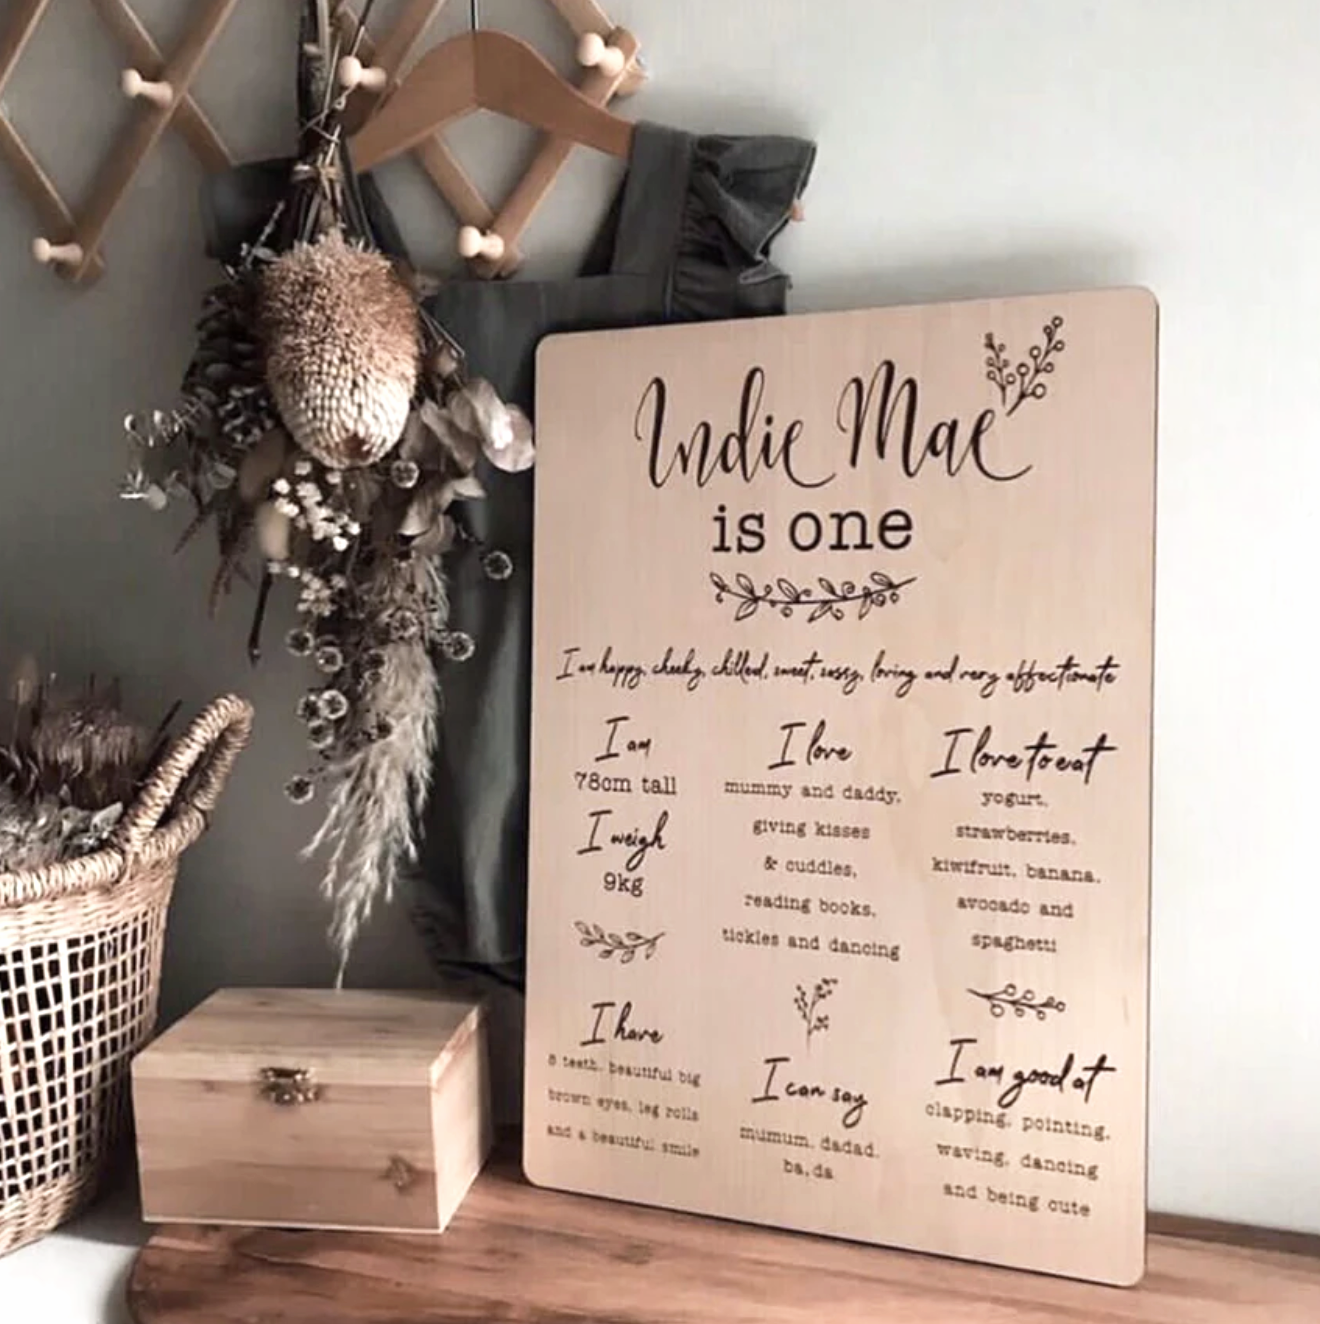 Indie Mae
is one
I am happy, cheeky, chilled, sweet, sassy, loving and very affectionate
I am
78cm tall
I weigh
9kg
I have
8 teeth, beautiful big
brown eyes, leg rolls
and a beautiful smile
I love
mummy and daddy,
giving kisses
& cuddles,
reading books,
tickles and dancing
I can say
mumum, dadad,
ba, da
I love to eat
yogurt,
strawberries,
kiwifruit, banana,
avocado and
spaghetti
I am good at
clapping, pointing,
waving, dancing
and being cute